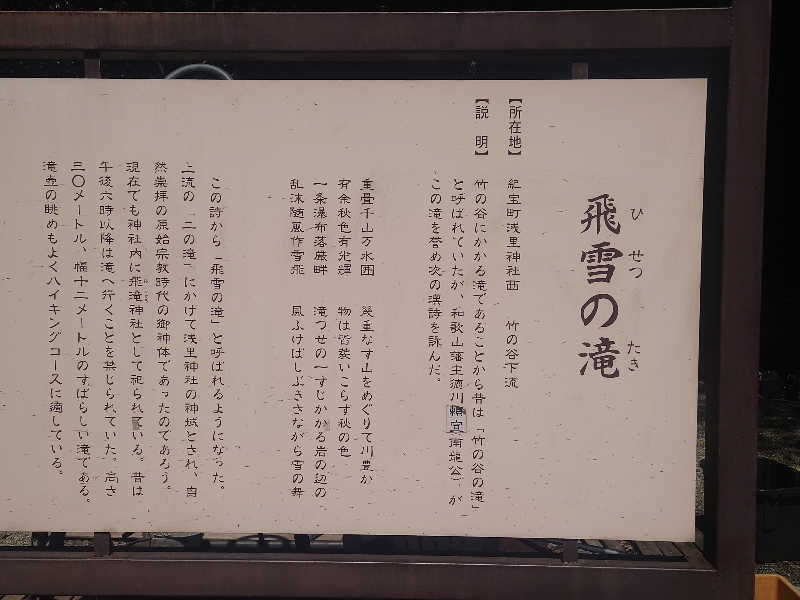 飛雪の滝
ひ せつ たき
【所在地】 紀宝町浅里神社西 竹の谷下流
【説 明】 竹の谷にかかる滝であることから昔は「竹の谷の滝」
と呼ばれていたが、和歌山藩主徳川頼宣(南龍公)が
この滝を誉め次の漢詩を詠んだ。
重畳千山万水囲 幾重なす山をめぐりて川豊か
有余秋色有光輝 物は皆装いこらす秋の色
一条瀑布落厳畔 滝つせの一すじかかる岩の辺の
乱沫随風作雪飛 風ふけばしぶきさながら雪の舞
この詩から「飛雪の滝」と呼ばれるようになった。
上流の「二の滝」にかけて浅里神社の神域とされ、自
然崇拝の原始宗教時代の御神体であったのであろう。
現在でも神社内に飛滝神社として祀られている。昔は
午後六時以降は滝へ行くことを禁じられていた。高さ
三〇メートル、幅十二メートルのすばらしい滝である。
滝壺の眺めもよくハイキングコースに適している。